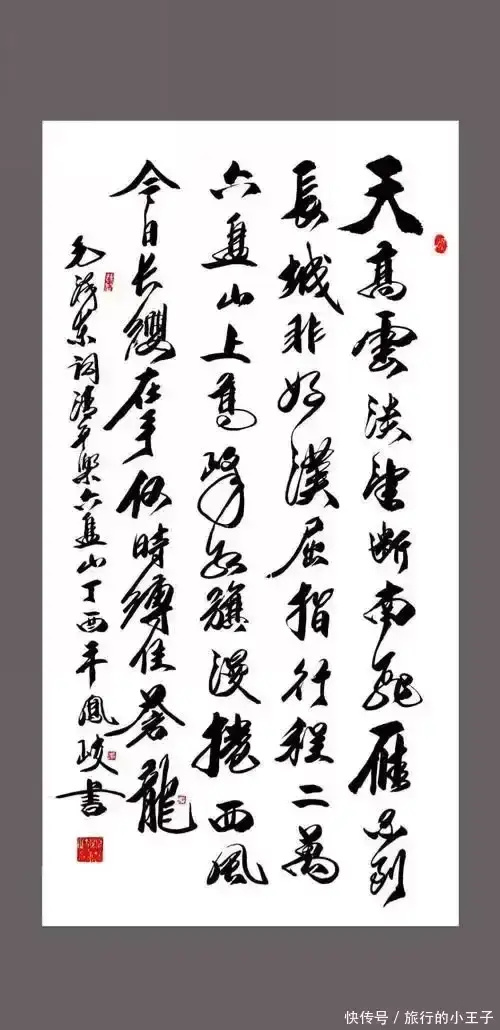 天高雲淡望斷南飛雁不到
長城非好漢屈指行程二萬
六盘山上高峰紅旗漫捲西風
今日长纓在手何時縛住蒼龍
毛澤东詞清平樂六盘山丁酉年鳳岐書
快传号 / 旅行的小王子